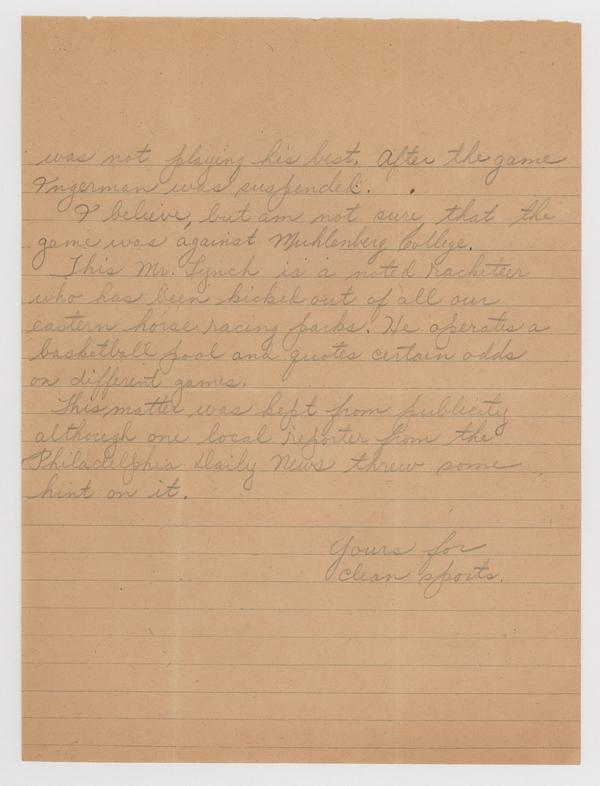 was not playing his best. After the game
Ingerman was suspended.
I believe, but am not sure, that the
game was against Muhlenberg College.
This Mr. Lynch is a noted racketeer
who has been kicked out of all our
eastern horse racing parks. He operates a
basketball pool and quotes certain odds
on different games.
This matter was kept from publicity
although one local reporter from the
Philadelphia Daily News threw some
hint on it.
Yours for
clean sports.